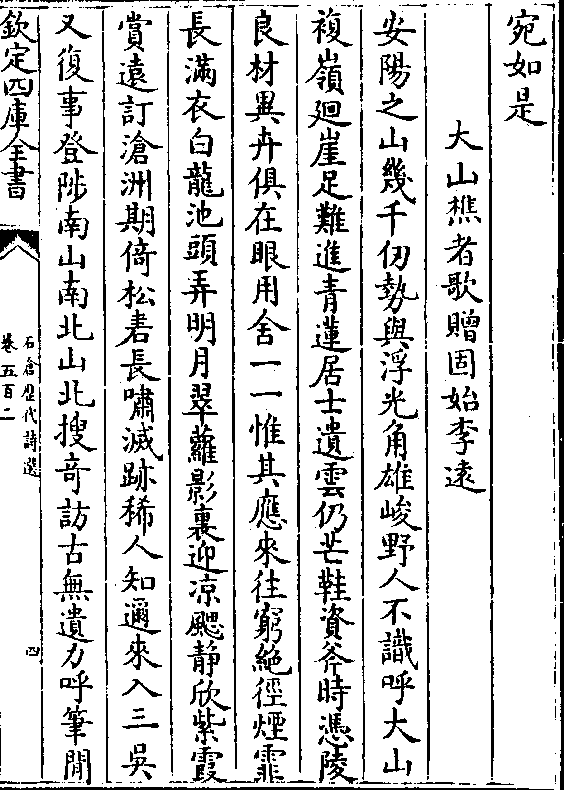 宛如是
大山樵者歌贈固始李遠
安陽之山幾千仞勢與浮光角雄峻野人不識呼大山
複嶺廻崖足難進青蓮居士遺雲仍芒鞋資斧時憑陵
良材異卉俱在眼用舍一一惟其應來往窮絶徑煙霏
長滿衣白龍池頭弄明月翠蘿影裏迎凉颸静欣紫霞
賞遠訂滄洲期倚松砉長嘯滅跡稀人知邇來入三吳
又復事登陟南山南北山北搜竒訪古無遺力呼筆閒
欽定四庫全書
石倉歷代詩選
卷五百二
四